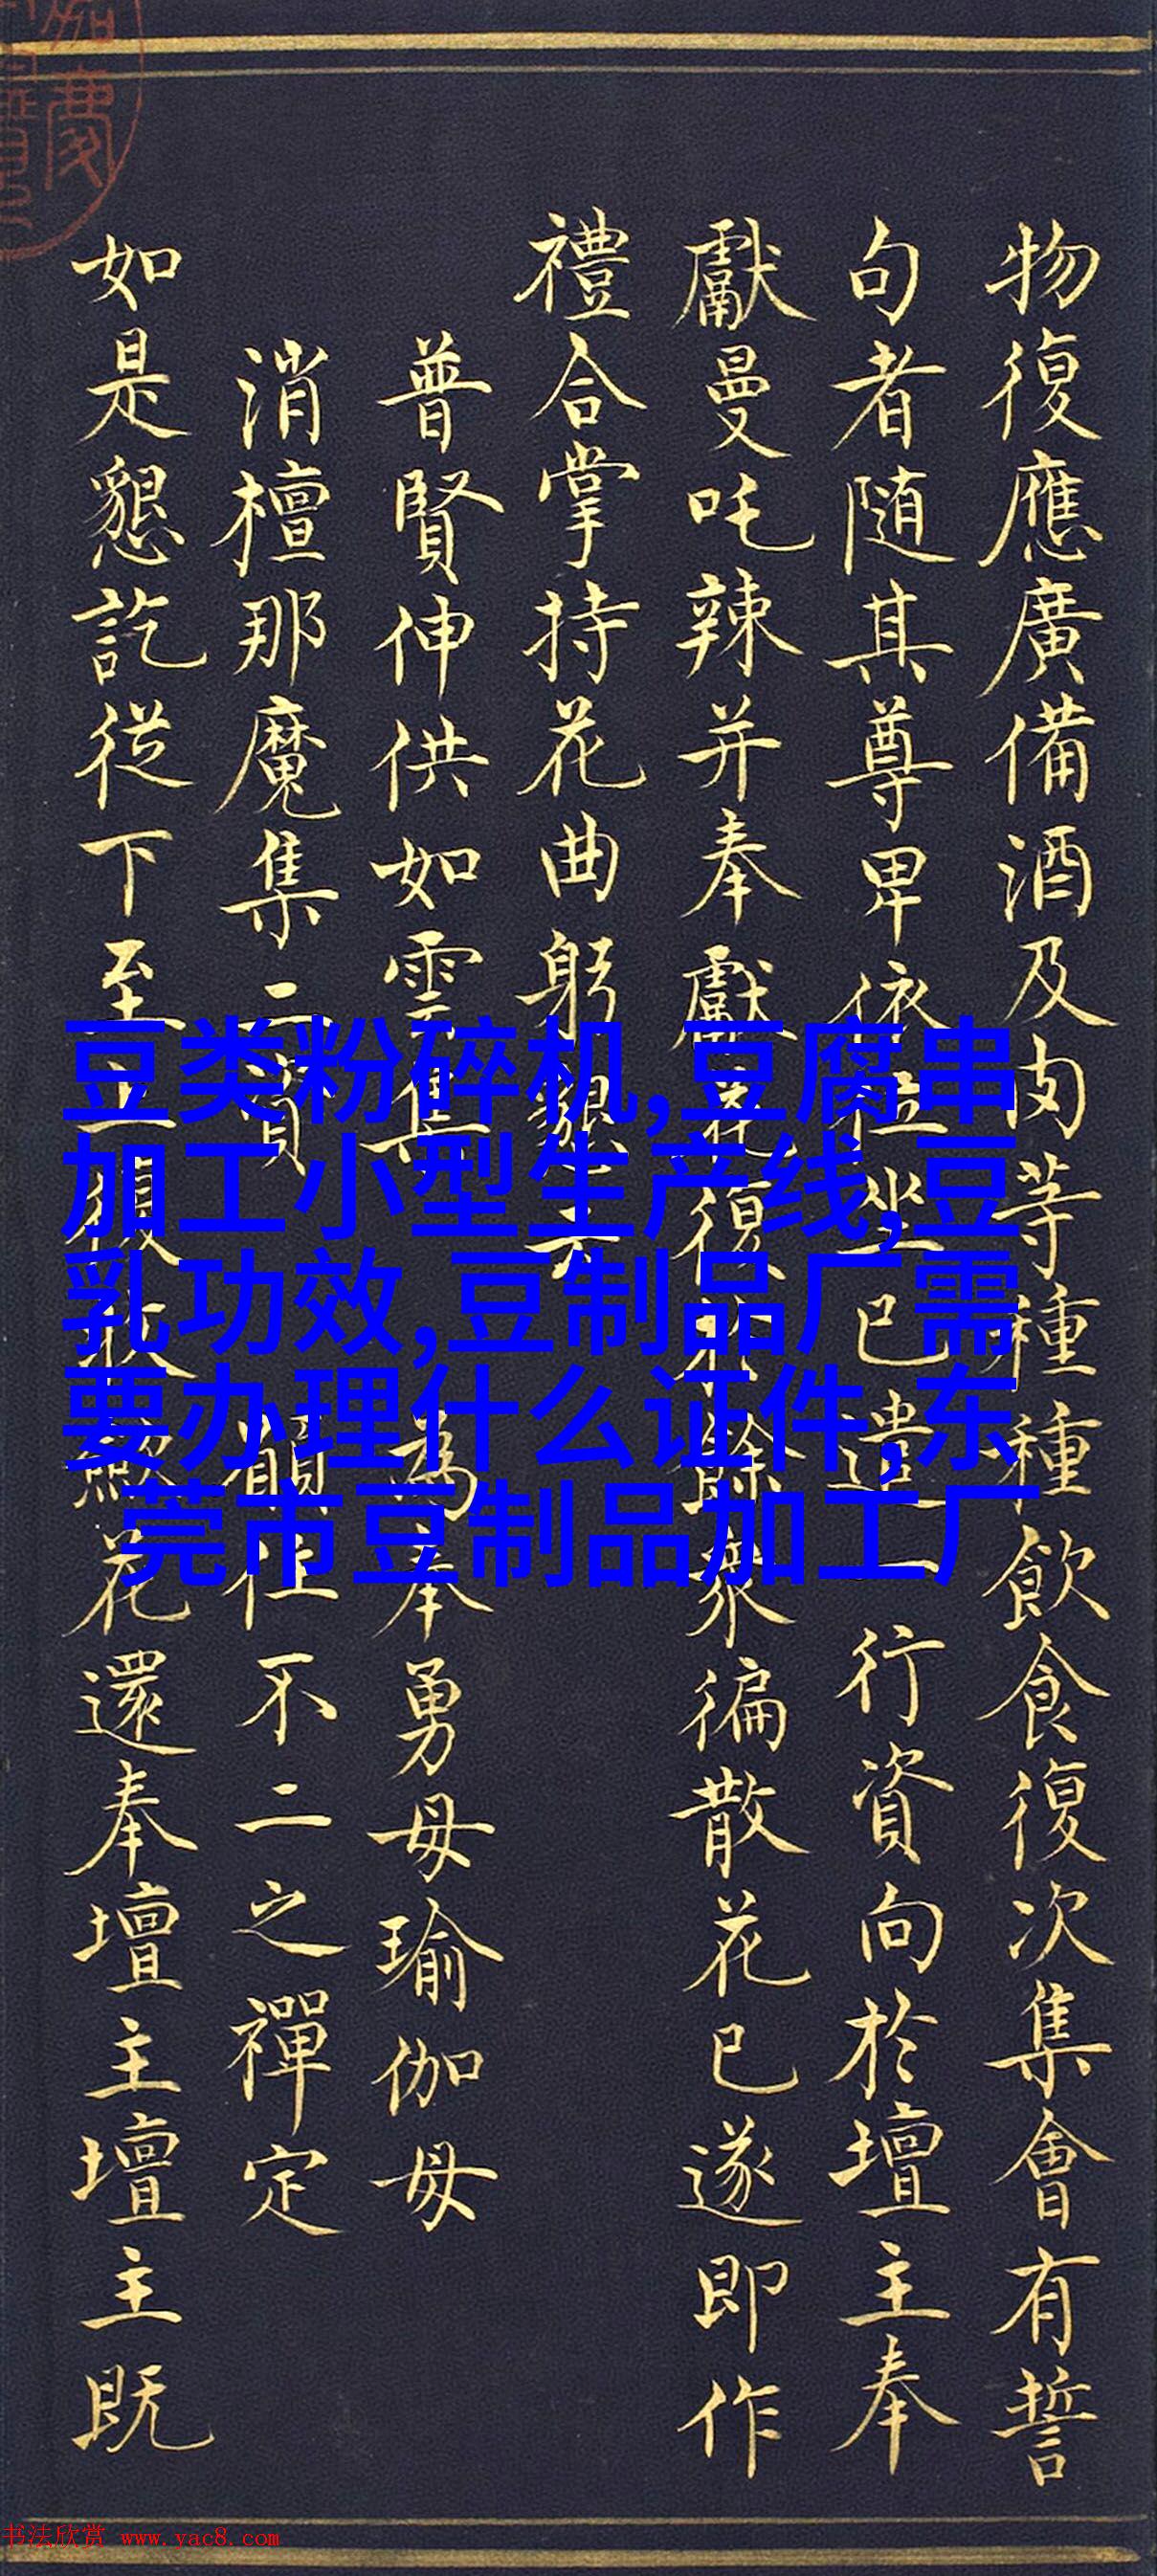 物復應廣備酒及肉等種種飲食復次集會有誓
句者随其尊卑依位坐已遣一行資向於壇主奉
獻曼吒辣并奉獻花復於餘衆徧散花已遂即作
禮合掌持花曲躬懇
普賢伸供如雲集 為奉勇母瑜伽母
消檀那魔集二資 願住不二之禪定
如是懇訖從下至上復收歛花還奉壇主壇主既
豆类粉碎机,豆腐串
加工小型生产线,豆
乳功效,豆制品厂需
要办理什么证件,东
莞市豆制品加工厂
书法欣赏 www.yac8.com